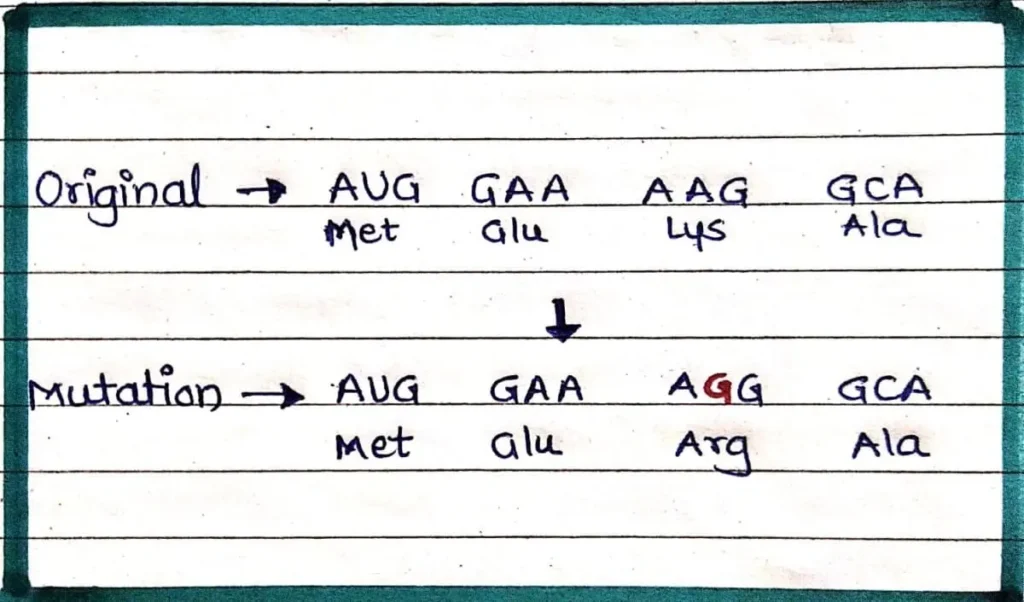 Original → AUG GAA AAG GCA
Met Glu Lys Ala
↓
Mutation → AUG GAA AGG GCA
Met Glu Arg Ala